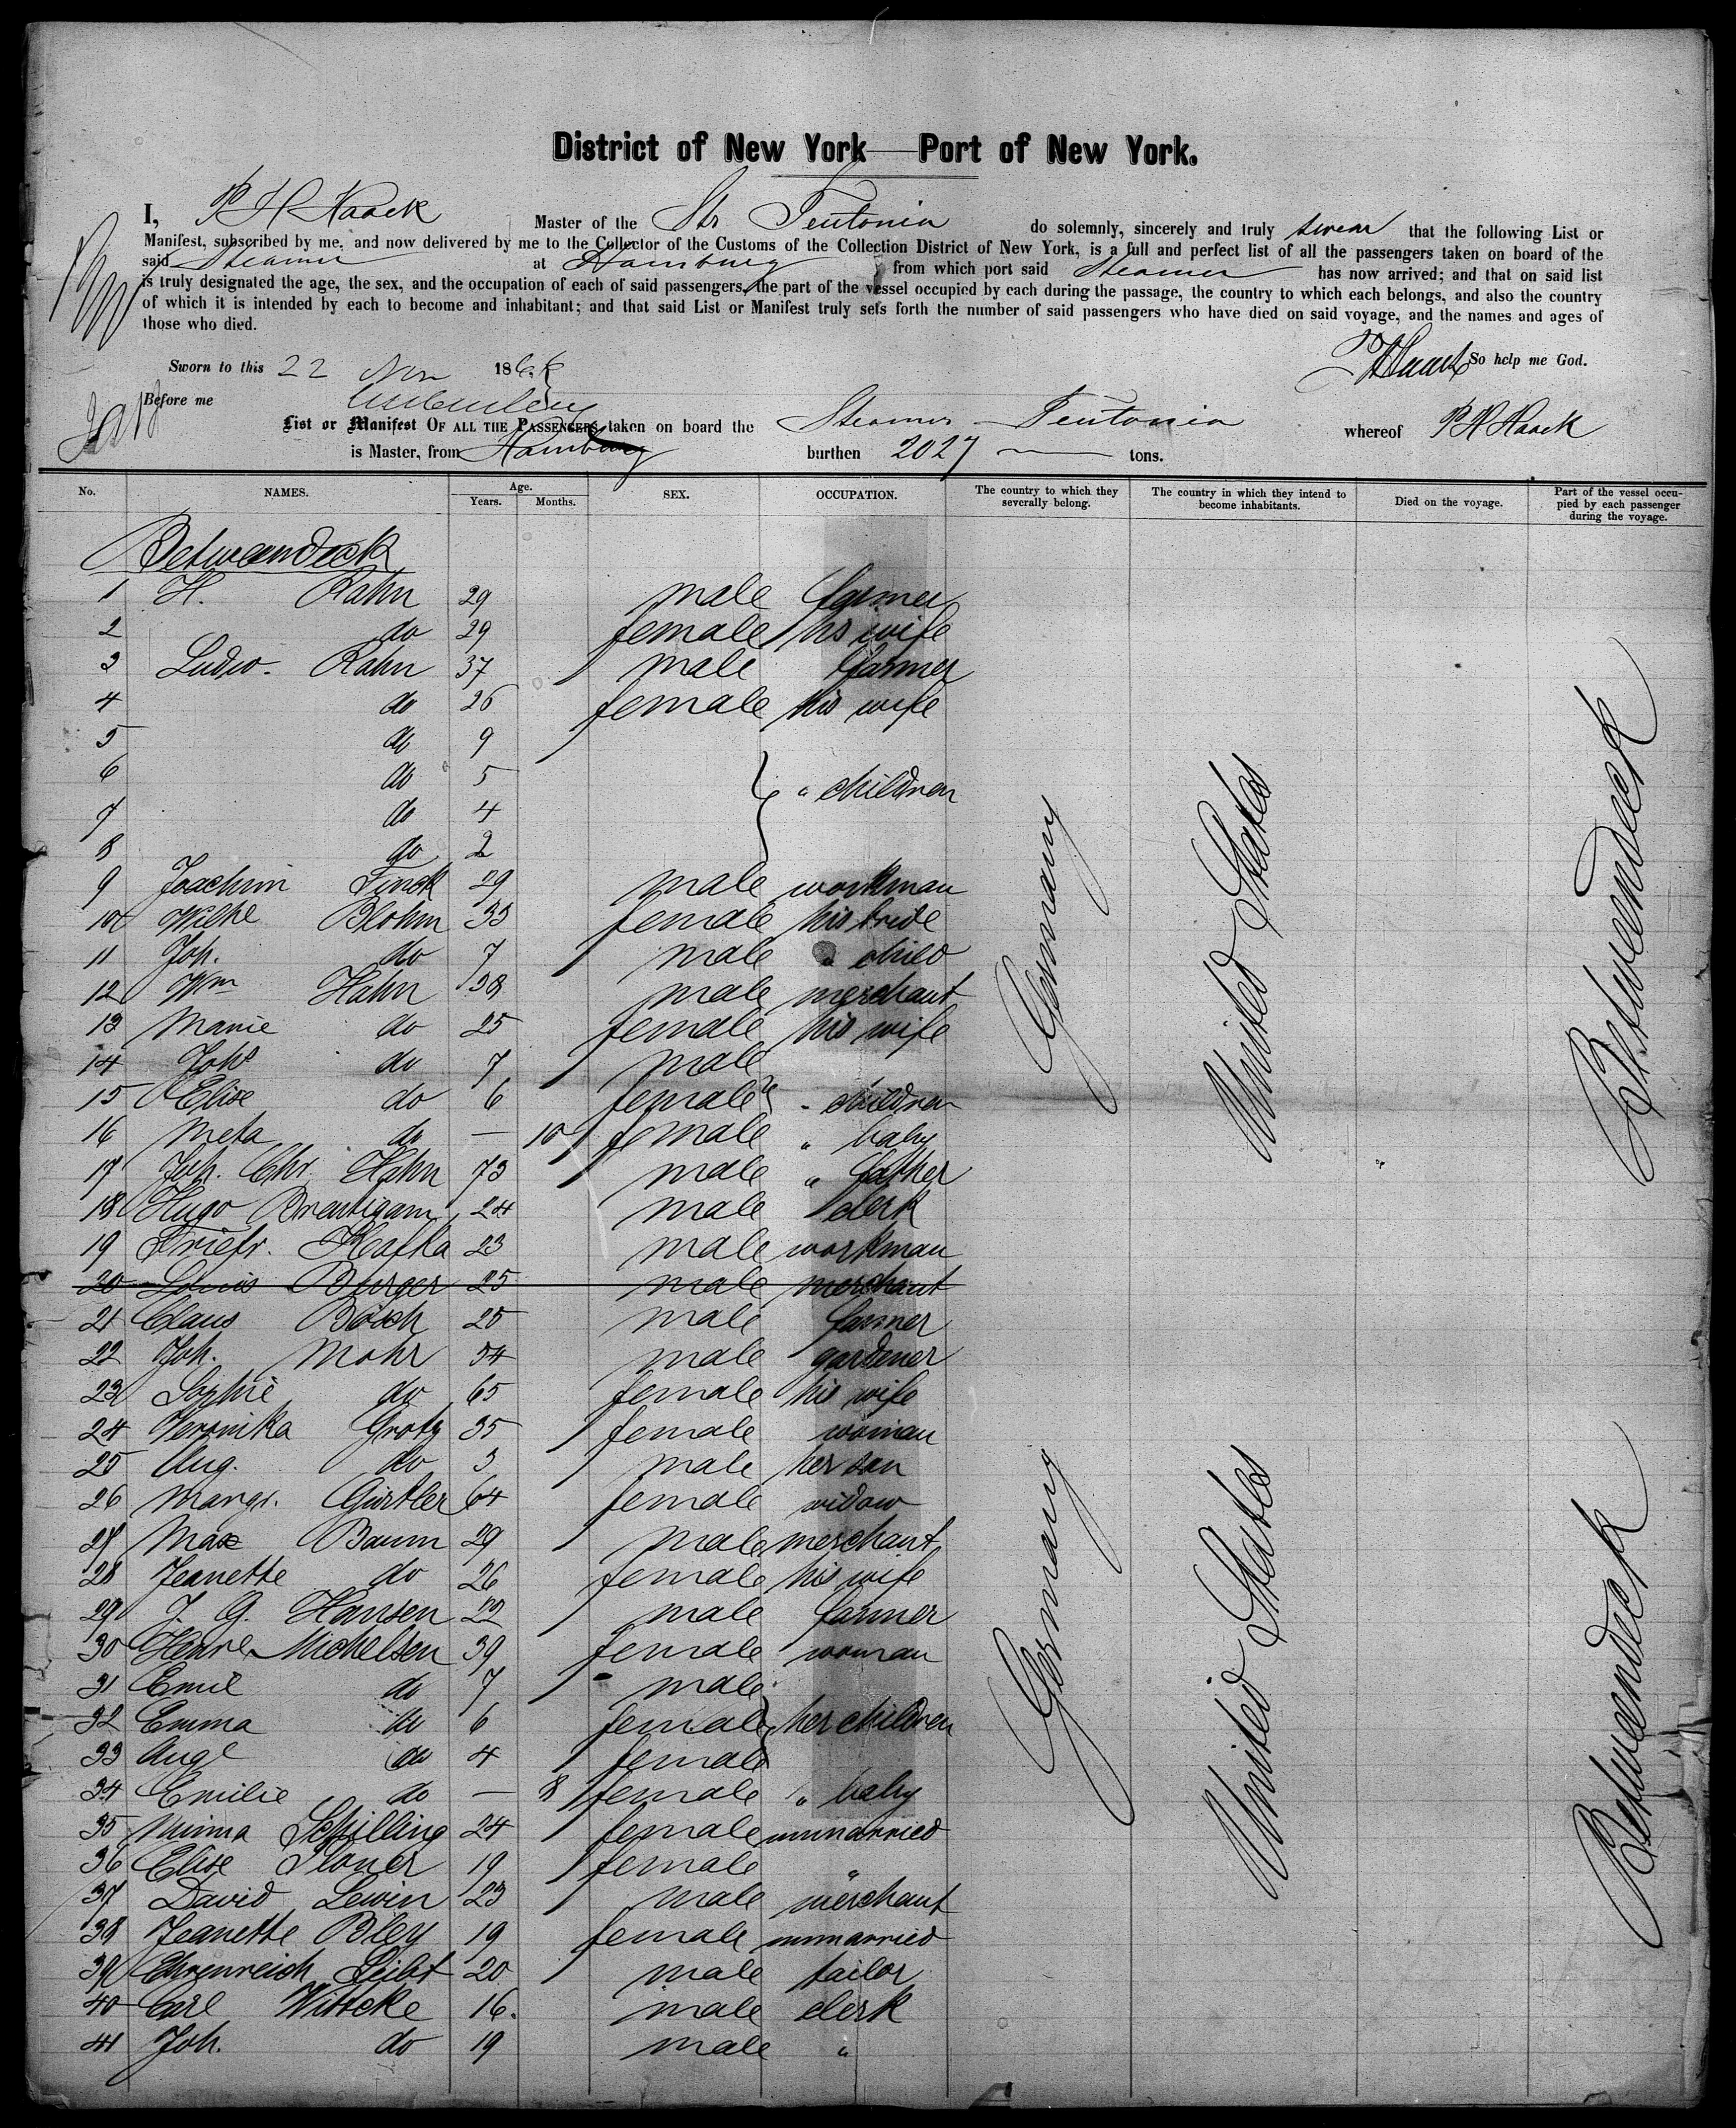 District of New York—Port of New York.
I, P H Haack Master of the Str Teutonia do solemnly, sincerely and truly swear that the following List or
Manifest, subscribed by me, and now delivered by me to the Collector of the Customs of the Collection District of New York, is a full and perfect list of all the passengers taken on board of the
said Steamer at Hamburg from which port said Steamer has now arrived; and that on said list
is truly designated the age, the sex, and the occupation of each of said passengers, the part of the vessel occupied by each during the passage, the country to which each belongs, and also the country
of which it is intended by each to become and inhabitant; and that said List or Manifest truly sets forth the number of said passengers who have died on said voyage, and the names and ages of
those who died.
PH Haack So help me God.
Sworn to this 22 Nov 186
Before me
List or Manifest OF ALL THE PASSENGERS taken on board the Steamer Teutonia whereof P H Haack
is Master, from Hamburg burthen 2027 tons.
No. NAMES. Age. Years. Months. SEX. OCCUPATION. The country to which they severally belong. The country in which they intend to become inhabitants. Died on the voyage. Part of the vessel occupied by each passenger during the voyage.
Betweendeck
1 H. Rahn 29 male farmer
2 do 29 female his wife
3 Ludw. Rahn 37 male farmer
4 do 26 female his wife
5 do 9
6 do 5 " children
7 do 4
8 do 2
9 Joachim Finck 29 male workman
10 Wilhe Blohm 33 female his bride
11 Joh. do 7 male " child
12 Wm Hahn 38 male merchant
13 Marie do 25 female his wife
14 Johs do 7 male
15 Elise do 6 female " children
16 Meta do — 10 female " baby
17 Joh. Chr. Hahn 73 male " father
18 Hugo Breutigam 24 male clerk
19 Friedr. Kafka 23 male workman
20 Louis Burger 25 male merchant
21 Claus Bösch 25 male farmer
22 Joh. Mohr 54 male gardener
23 Sophie do 65 female his wife
24 Veronika Grotz 35 female woman
25 Aug. do 3 male her son
26 Margr. Gürtler 64 female widow
27 Max Baum 29 male merchant
28 Jeanette do 26 female his wife
29 J. G. Hansen 22 male farmer
30 Henre Michelsen 39 female woman
31 Emil do 7 male
32 Emma do 6 female her children
33 Auge do 4 female
34 Emilie do — 8 female " baby
35 Minna Schilling 24 female unmarried
36 Elise Ploner 19 female "
37 David Lewin 23 male merchant
38 Jeanette Bley 19 female unmarried
39 Ehrenreich Leibt 20 male tailor
40 Carl Wittcke 16. male clerk
41 Joh. do 19 male "
Germany United States Betweendeck
Germany United States Betweendeck